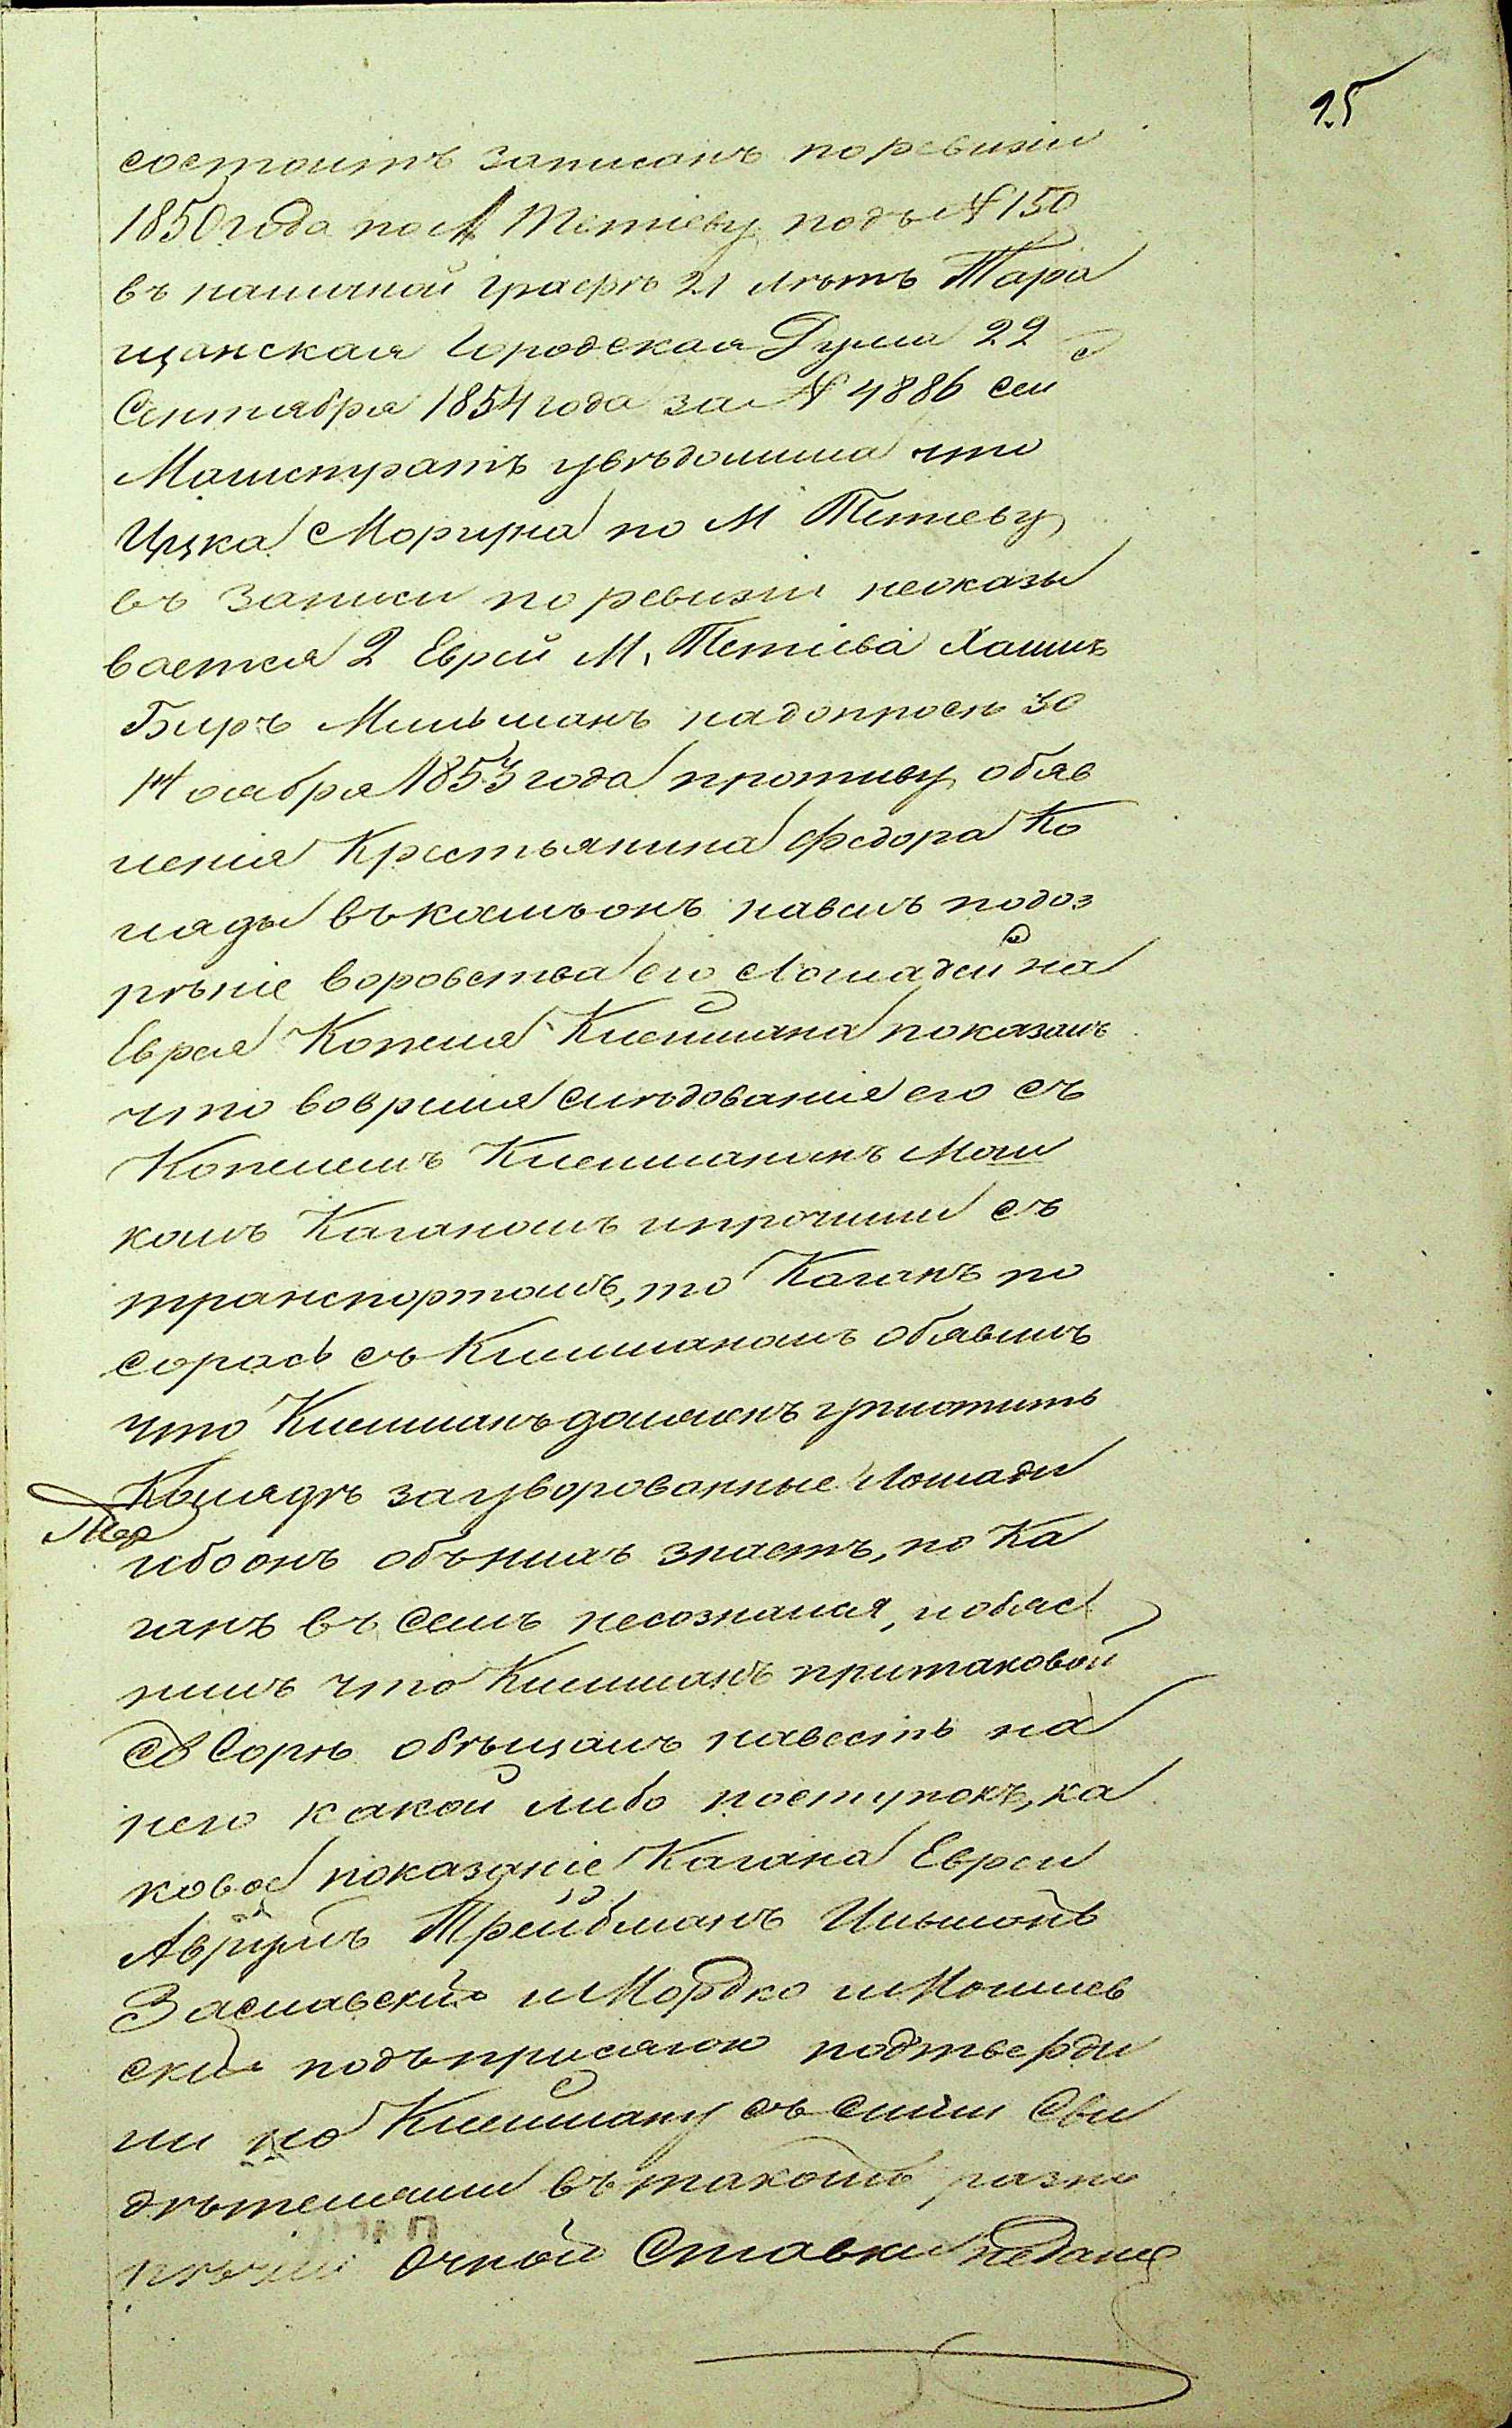 25
состоитъ записанъ по ревизіи
1850 года по М Тетіеву подъ № 150
въ наличной графѣ 21 лѣтъ Тара
щанская Городская Дума 22
Сентября 1854 года за № 4886 сей
Магистратъ увѣдомила что
Ицка Моруна по М Тетіеву
въ записи по ревизіи неоказы
вается 2 Еврей М. Тетіева Хаимъ
Беръ Мильманъ надопросѣ 30
Ноября 1853 года противу обяв
ленія Крестьянина Федора Ко
ляды въкоемъ онъ навелъ подоз
рѣніе воровства его Лошадей на
Еврея Копеля Клейшмана показалъ
что вовремя слѣдованія его съ
Копелемъ Клейшманомъ Мош
комъ Каганомъ ипрочими съ
транспортомъ, то Каганъ по
сорясь съ Клейшманомъ обявилъ
что Клейшманъ долженъ уплотить
Колядѣ за уворованные Лошади
ибо онъ объ нихъ знаетъ, но Ка
ганъ въ семъ несознался, иобяс
нилъ что Клейшманъ притаковой
съ Сорѣ обѣщалъ навесть на
него какой либо поступокъ, ка
ковое показаніе Кагана Евреи
Аврумъ Трейбманъ Ильмонъ
Заславскій иМордко иМошіев
скій подъприсягою подтверди
ли но Клейшману съ сими Сви
дѣтелями въ такомъ разно
рѣчіи Очной Ставки недано